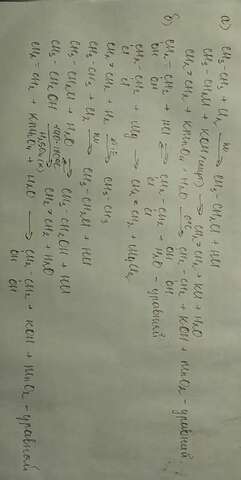 а) CH3 - CH3 + Cl2 hν→ CH3 - CH2Cl + HCl
CH3 - CH2Cl + KOH (спирт) → CH2 = CH2 + KCl + H2O
CH2 = CH2 + KMnO4 + H2O → CH2 - CH2 + KOH + MnO2 - уравняй
OH OH
б) CH2 - CH2 + HCl ⇄ CH2 - CH2 + H2O - уравняй
OH OH Cl Cl
CH2 - CH2 + Mg → CH2 = CH2 + MgCl2
Cl Cl
CH2 = CH2 + H2 → CH3 - CH3
CH3 - CH3 + Cl2 hν→ CH3 - CH2Cl + HCl
CH3 - CH2Cl + H2O ⇄ CH3 - CH2OH + HCl
CH3 - CH2OH H2SO4(к)→ CH2 = CH2 + H2O
CH2 = CH2 + KMnO4 + H2O → CH2 - CH2 + KOH + MnO2 - уравняй
OH OH